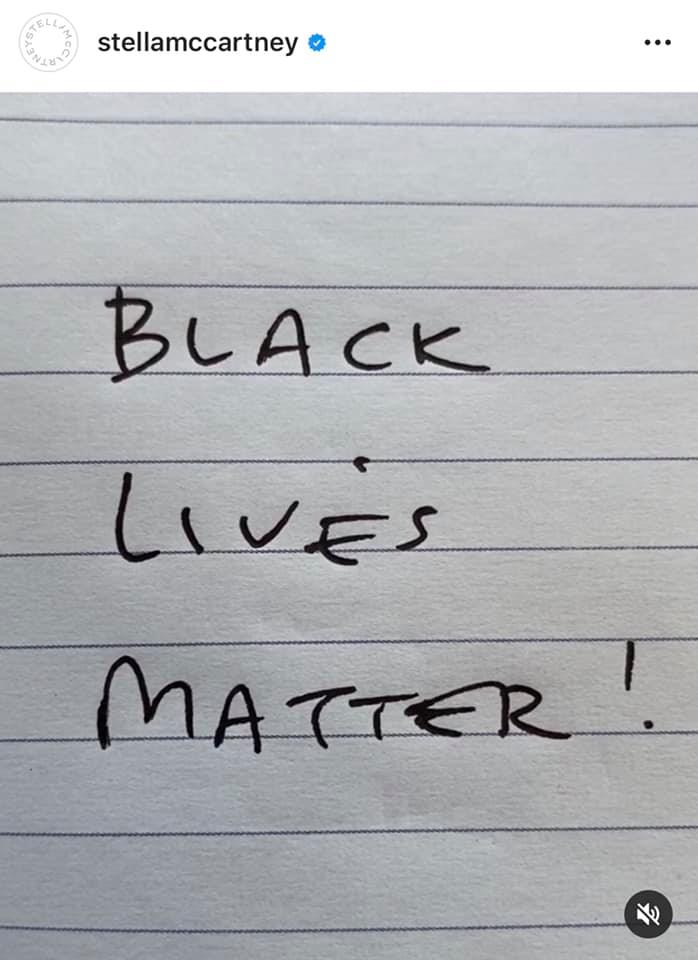 stellamccartney
BLACK
LIVES
MATTER!